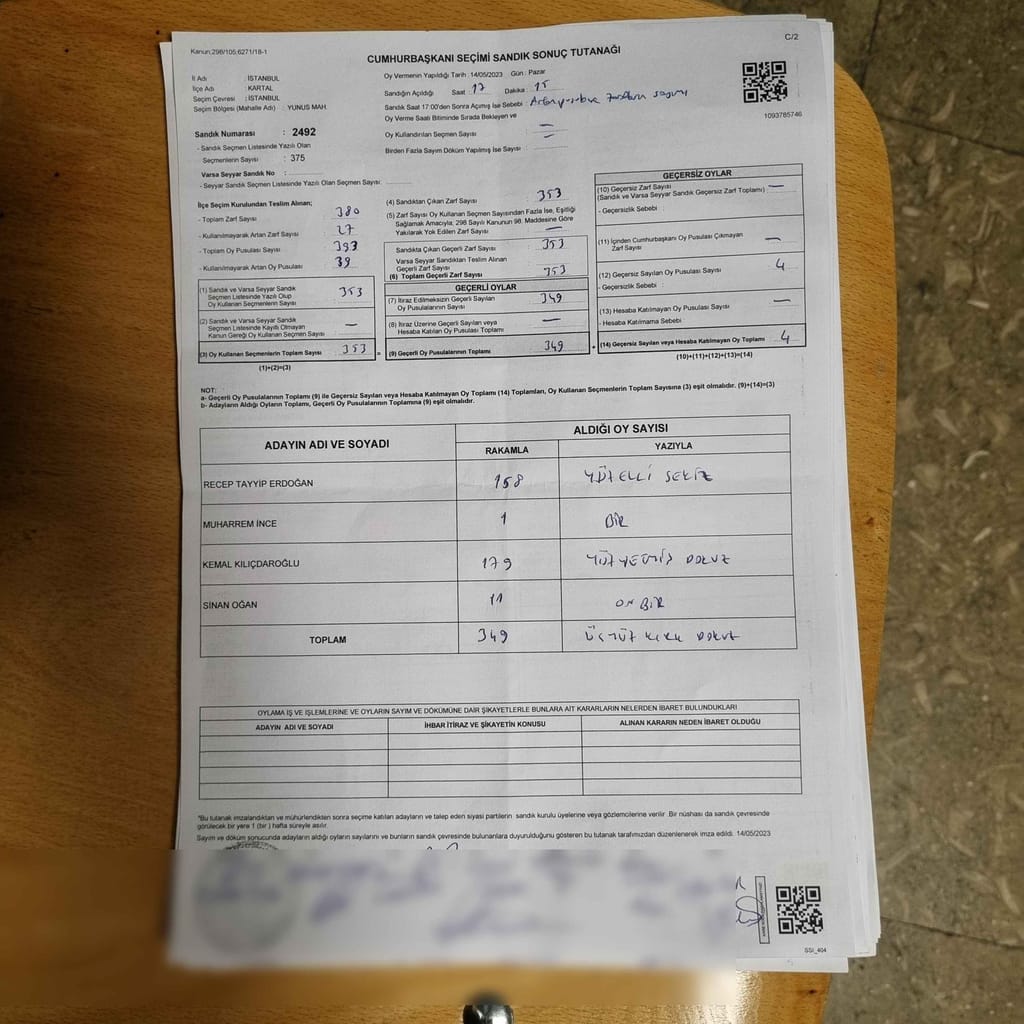 Kanun;298/105;6271/18-1
C/2
CUMHURBAŞKANI SEÇİMİ SANDIK SONUÇ TUTANAĞI
İl Adı : İSTANBUL
İlçe Adı : KARTAL
Seçim Çevresi : İSTANBUL
Seçim Bölgesi (Mahalle Adı) : YUNUS MAH.
Sandık Numarası : 2492
- Sandık Seçmen Listesinde Yazılı Olan
Seçmenlerin Sayısı : 375
Varsa Seyyar Sandık No :
- Seyyar Sandık Seçmen Listesinde Yazılı Olan Seçmen Sayısı:
Oy Vermenin Yapıldığı Tarih : 14/05/2023 Gün : Pazar
Sandığın Açıldığı Saat 17 Dakika : 15
Sandık Saat 17:00'den Sonra Açılmış İse Sebebi :
Oy Verme Saati Bitiminde Sırada Bekleyen ve
Oy Kullandırılan Seçmen Sayısı : —
Birden Fazla Sayım Döküm Yapılmış İse Sayısı :
1093785746
İlçe Seçim Kurulundan Teslim Alınan;
- Toplam Zarf Sayısı : 380
- Kullanılmayarak Artan Zarf Sayısı : 27
- Toplam Oy Pusulası Sayısı : 393
- Kullanılmayarak Artan Oy Pusulası : 39
(1) Sandık ve Varsa Seyyar Sandık
Seçmen Listesinde Yazılı Olup
Oy Kullanan Seçmenlerin Sayısı : 353
(2) Sandık ve Varsa Seyyar Sandık
Seçmen Listesinde Kayıtlı Olmayan
Kanun Gereği Oy Kullanan Seçmen Sayısı : —
(3) Oy Kullanan Seçmenlerin Toplam Sayısı : 353
(1)+(2)=(3)
(4) Sandıktan Çıkan Zarf Sayısı : 353
(5) Zarf Sayısı Oy Kullanan Seçmen Sayısından Fazla İse, Eşitliği
Sağlamak Amacıyla, 298 Sayılı Kanunun 98. Maddesine Göre
Yakılarak Yok Edilen Zarf Sayısı : —
Sandıkta Çıkan Geçerli Zarf Sayısı : 353
Varsa Seyyar Sandıktan Teslim Alınan
Geçerli Zarf Sayısı
(6) Toplam Geçerli Zarf Sayısı : 353
GEÇERLİ OYLAR
(7) İtiraz Edilmeksizin Geçerli Sayılan
Oy Pusulalarının Sayısı : 349
(8) İtiraz Üzerine Geçerli Sayılan veya
Hesaba Katılan Oy Pusulası Toplamı : —
(9) Geçerli Oy Pusulalarının Toplamı : 349
GEÇERSİZ OYLAR
(10) Geçersiz Zarf Sayısı : —
(Sandık ve Varsa Seyyar Sandık Geçersiz Zarf Toplamı)
- Geçersizlik Sebebi :
(11) İçinden Cumhurbaşkanı Oy Pusulası Çıkmayan
Zarf Sayısı : —
(12) Geçersiz Sayılan Oy Pusulası Sayısı : 4
- Geçersizlik Sebebi :
(13) Hesaba Katılmayan Oy Pusulası Sayısı : —
- Hesaba Katılmama Sebebi :
(14) Geçersiz Sayılan veya Hesaba Katılmayan Oy Toplamı : 4
(10)+(11)+(12)+(13)=(14)
NOT:
a- Geçerli Oy Pusulalarının Toplamı (9) ile Geçersiz Sayılan veya Hesaba Katılmayan Oy Toplamı (14) Toplamları, Oy Kullanan Seçmenlerin Toplam Sayısına (3) eşit olmalıdır. (9)+(14)=(3)
b- Adayların Aldığı Oyların Toplamı, Geçerli Oy Pusulalarının Toplamına (9) eşit olmalıdır.
ADAYIN ADI VE SOYADI ALDIĞI OY SAYISI
RAKAMLA YAZIYLA
RECEP TAYYİP ERDOĞAN 158 YÜZ ELLİ SEKİZ
MUHARREM İNCE 1 BİR
KEMAL KILIÇDAROĞLU 179 YÜZ YETMİŞ DOKUZ
SİNAN OĞAN 11 ON BİR
TOPLAM 349 ÜÇ YÜZ KIRK DOKUZ
OYLAMA İŞ VE İŞLEMLERİNE VE OYLARIN SAYIM VE DÖKÜMÜNE DAİR ŞİKAYETLERLE BUNLARA AİT KARARLARIN NELERDEN İBARET BULUNDUKLARI
ADAYIN ADI VE SOYADI İHBAR İTİRAZ VE ŞİKAYETİN KONUSU ALINAN KARARIN NEDEN İBARET OLDUĞU
*Bu tutanak imzalandıktan ve mühürlendikten sonra seçime katılan adayların ve talep eden siyasi partilerin sandık kurulu üyelerine veya gözlemcilerine verilir. Bir nüshası da sandık çevresinde
görülecek bir yere 1 (bir) hafta süreyle asılır.
Sayım ve döküm sonucunda adayların aldığı oyların sayılarını ve bunların sandık çevresinde bulunanlara duyurulduğunu gösteren bu tutanak tarafımızdan düzenlenerek imza edildi. 14/05/2023
SSI_404